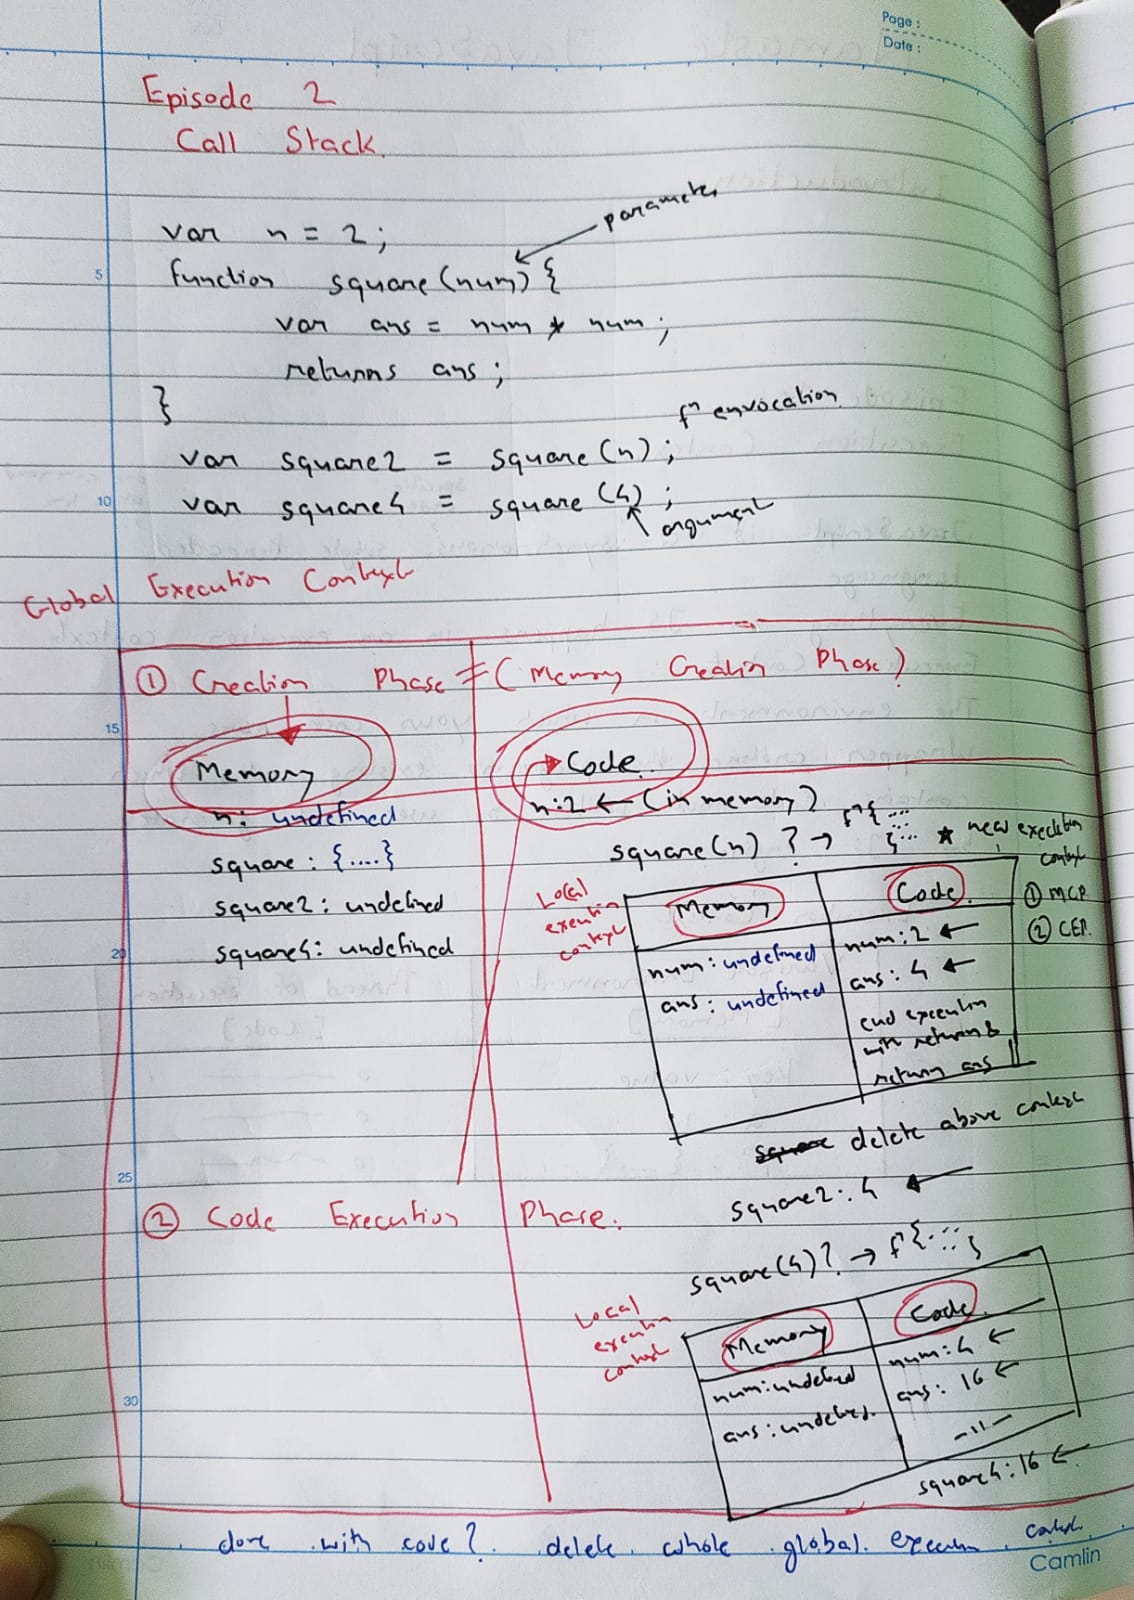 Page :
Date :
Episode 2
Call Stack.
parameter
var n = 2;
function square(num) {
var ans = num * num;
returns ans;
}
fn envocation
var square2 = square(n);
5
10
var square4 = square(4);
argument
Global Execution Context
① Creation Phase = (Memory Creatin Phase)
15
Memory
n: undefined
square: {....}
square2: undefined
20
square4: undefined
Code.
n:2 ← (in memory)
square(n) ? → fn{...
}
* new execution context
① MCP
② CEP.
Local execution context
Memory
Code.
num: undefined
ans: undefined
num:2 ←
ans: 4 ←
end execution
with returns &
return ans
delete above context
square2: 4 ←
25
② Code Execution Phase.
square(4)? → fn{....}
Local execution context
Memory
Code.
num: undefined
ans: undefined.
num:4 ←
ans: 16 ←
-11-
30
square4:16 ←
done with code? delete whole global execution context.
Camlin